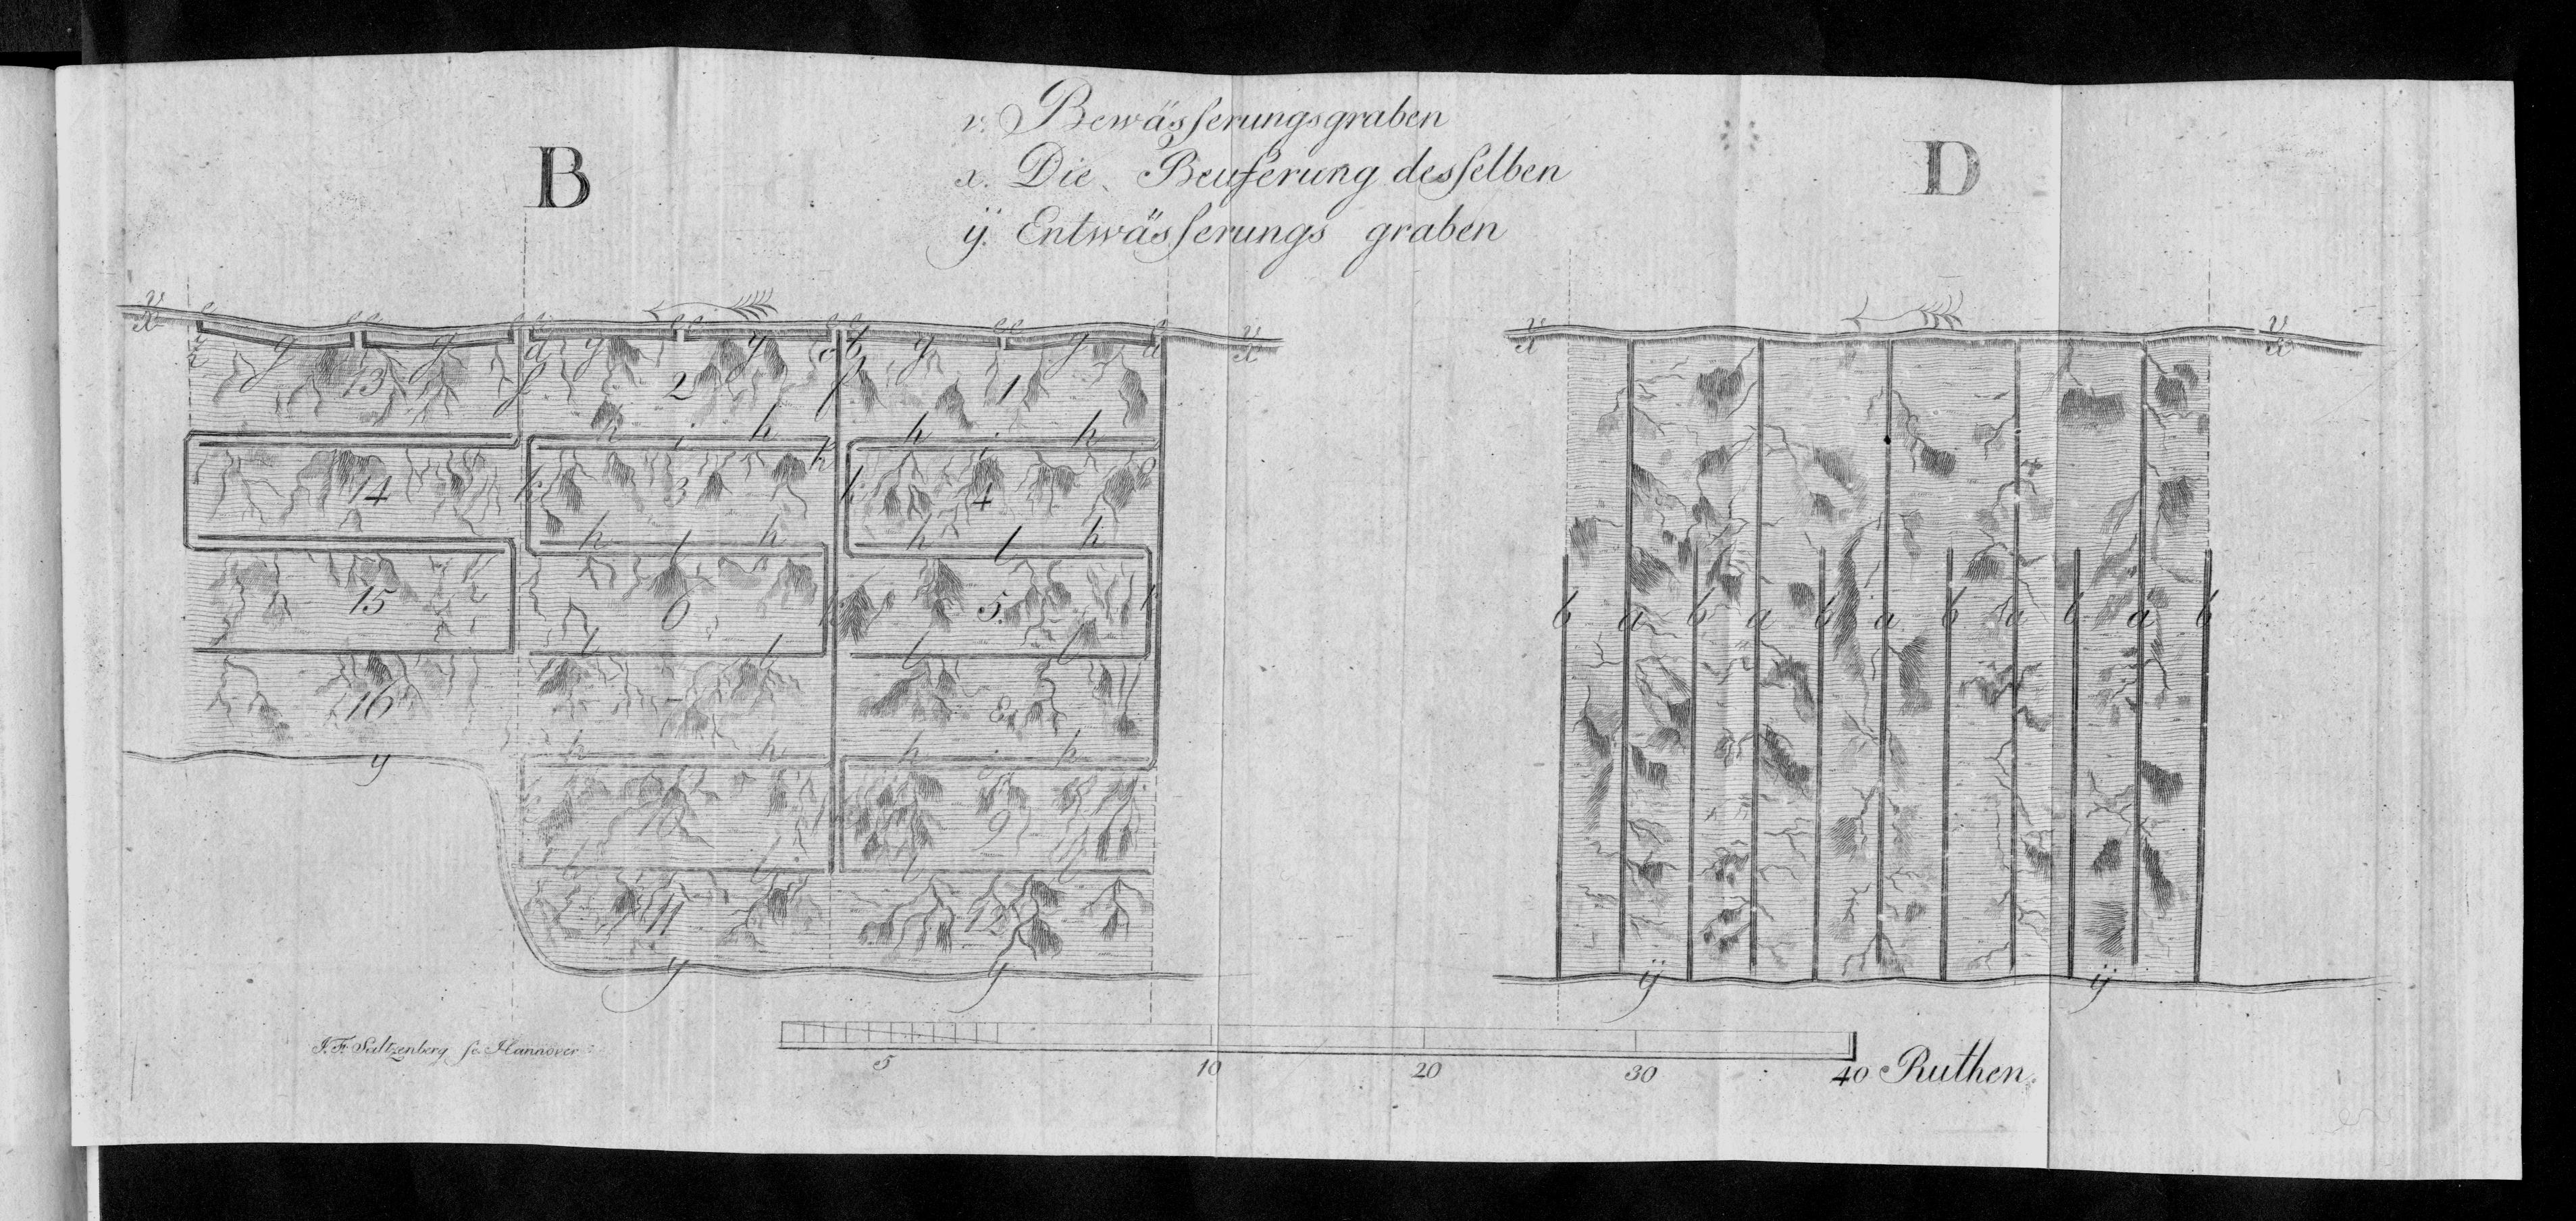 v. Bewässerungsgraben
B
x. Die Beuferung desselben
D
ÿ. Entwässerungs graben
v
x
v
x
v
x
v
x
g g g g g g
13 2 1
h h h h
14 3 4
h l h h l h
15 6 5.
l l l l
16 8
y
h h h h
10 9
l l l l
11 12
y y
b a b a b a b a b a b
ÿ ÿ
J. F. Saltzenberg sc. Hannover
5 10 20 30 40 Ruthen.